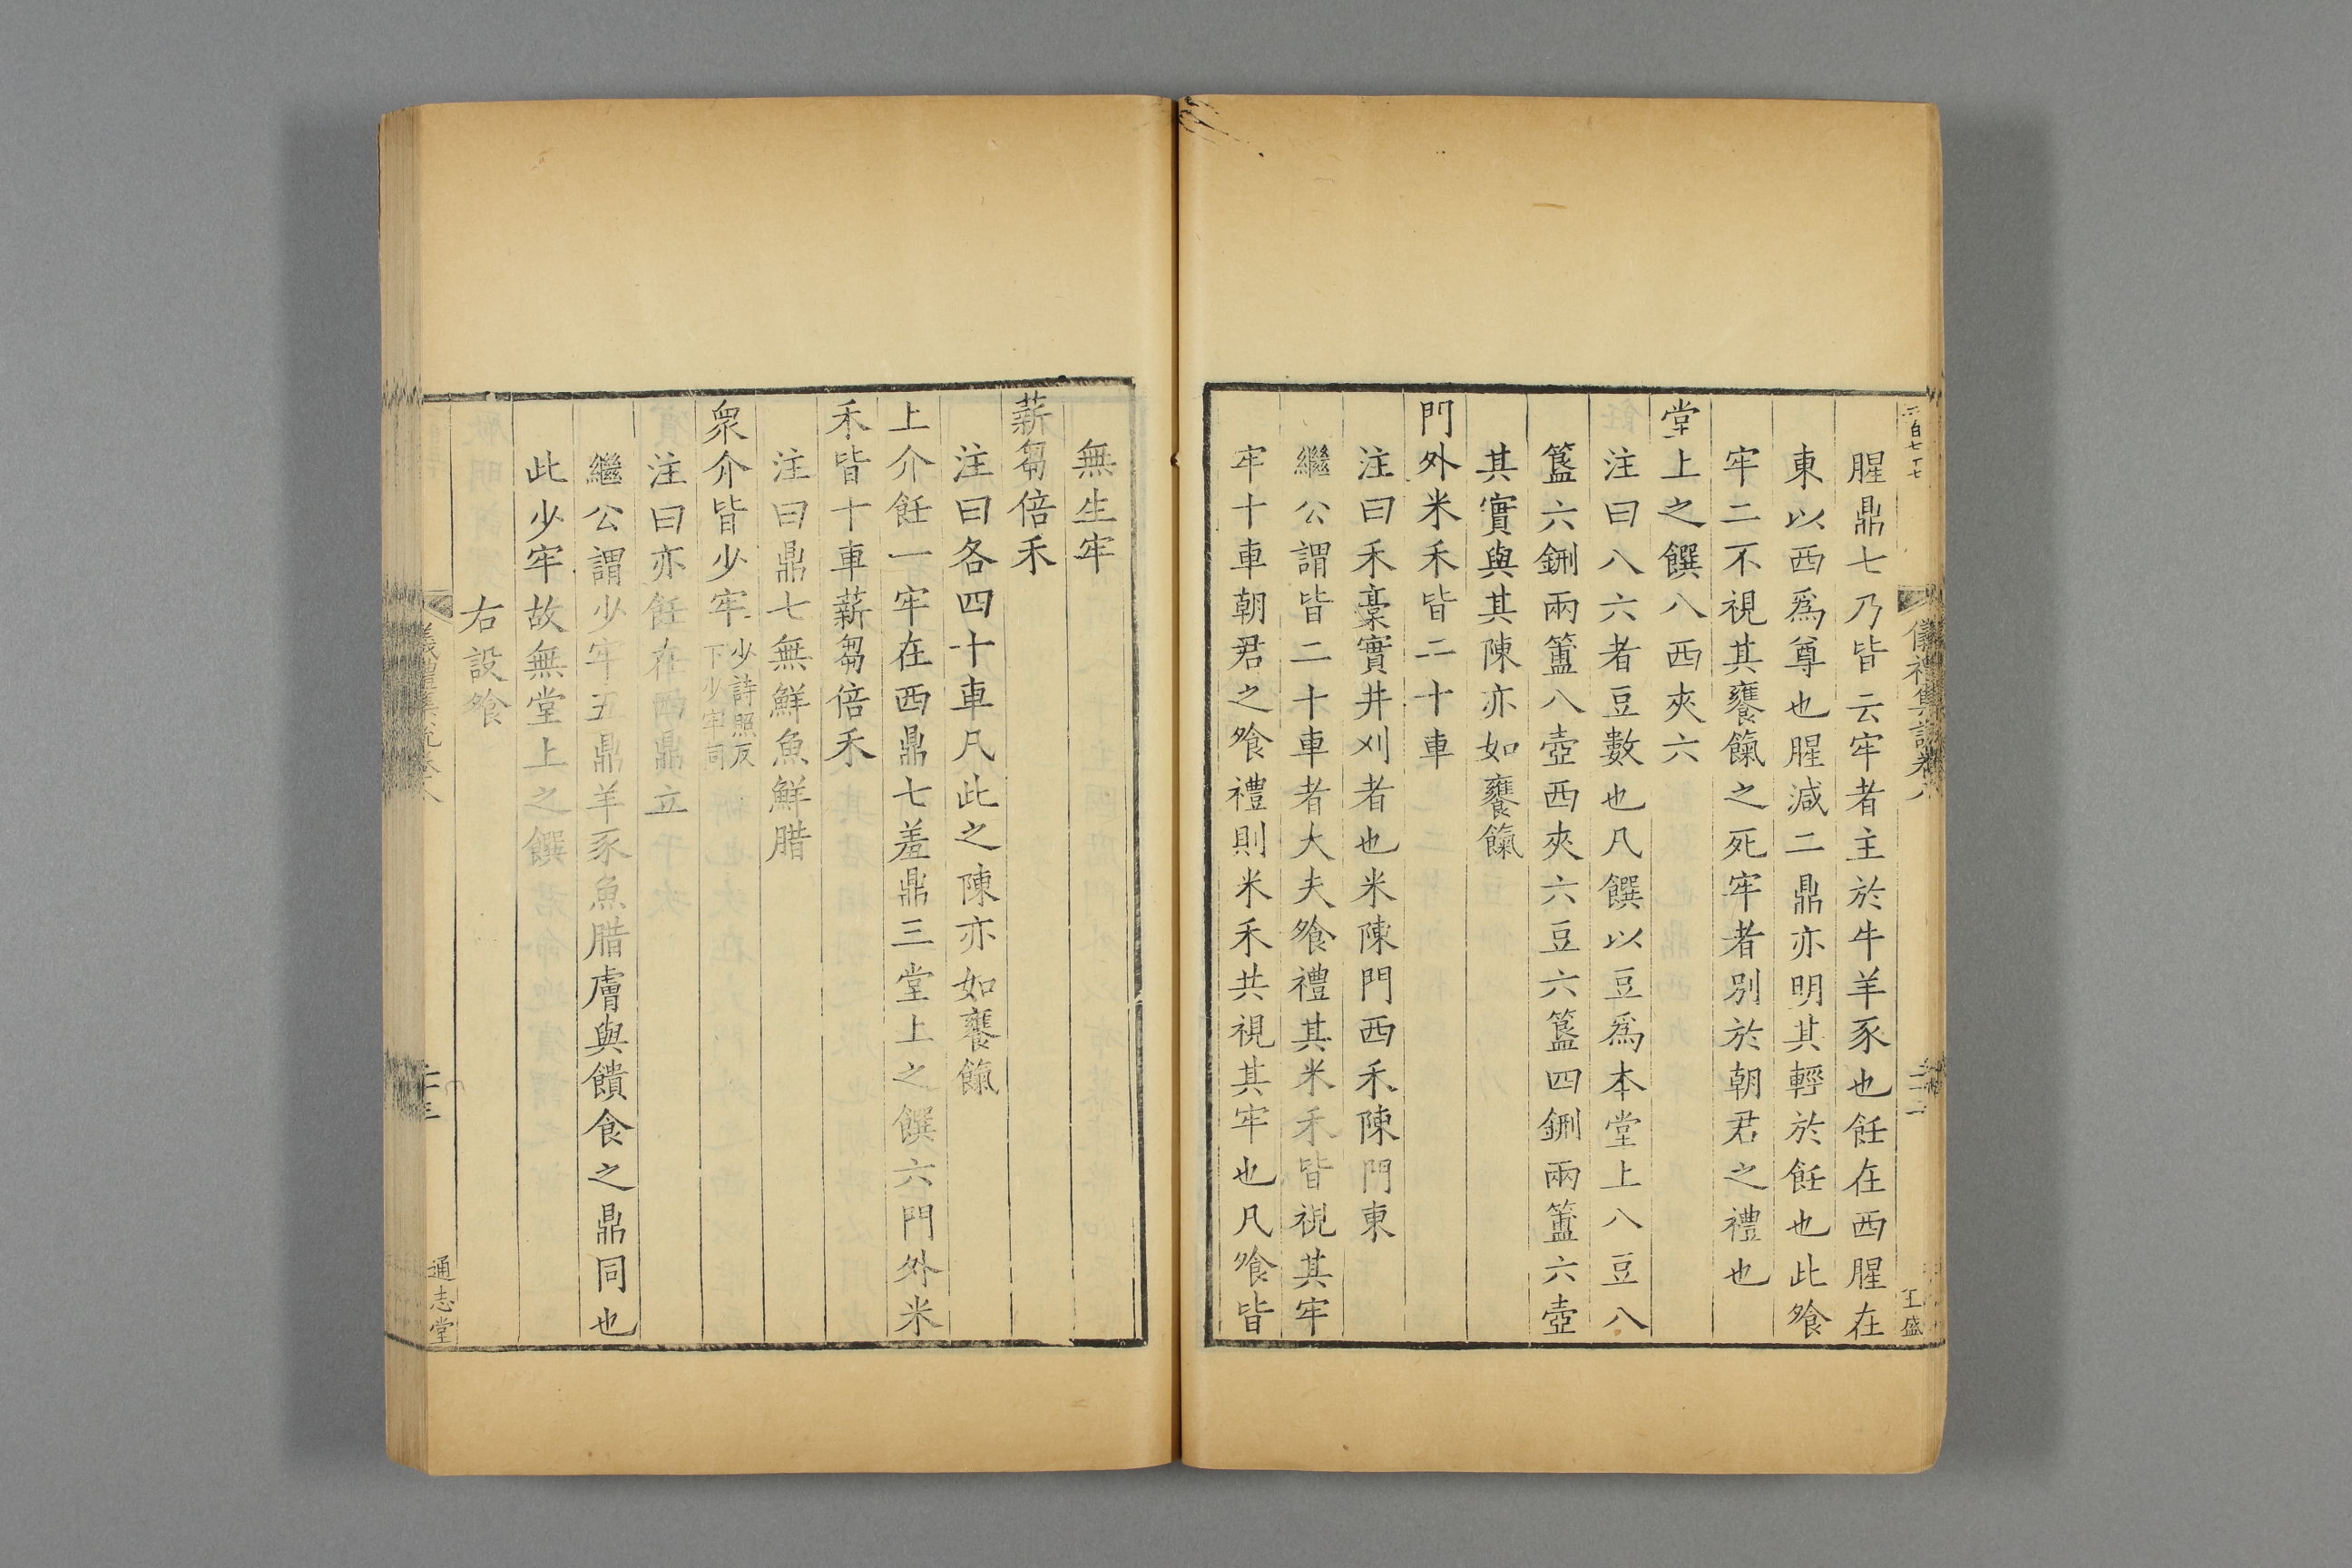 腥鼎七乃皆云牢者主於牛羊豕也飪在西腥在
東以西爲尊也腥減二鼎亦明其輕於飪也此飧
牢二不視其饔餼之死牢者別於朝君之禮也
堂上之饌八西夾六
注曰八六者豆數也凡饌以豆爲本堂上八豆八
簋六鉶兩簠八壺西夾六豆六簋四鉶兩簠六壺
其實與其陳亦如饔餼
門外米禾皆二十車
注曰禾稾實并刈者也米陳門西禾陳門東
繼公謂皆二十車者大夫飧禮其米禾皆視其牢
牢十車朝君之飧禮則米禾共視其牢也凡飧皆
王盛
無生牢
薪芻倍禾
注曰各四十車凡此之陳亦如饔餼
上介飪一牢在西鼎七羞鼎三堂上之饌六門外米
禾皆十車薪芻倍禾
注曰鼎七無鮮魚鮮腊
衆介皆少牢少詩照反下少牢同
注曰亦飪在西鼎五
繼公謂少牢五鼎羊豕魚腊膚與饋食之鼎同也
此少牢故無堂上之饌
右設飧
通志堂